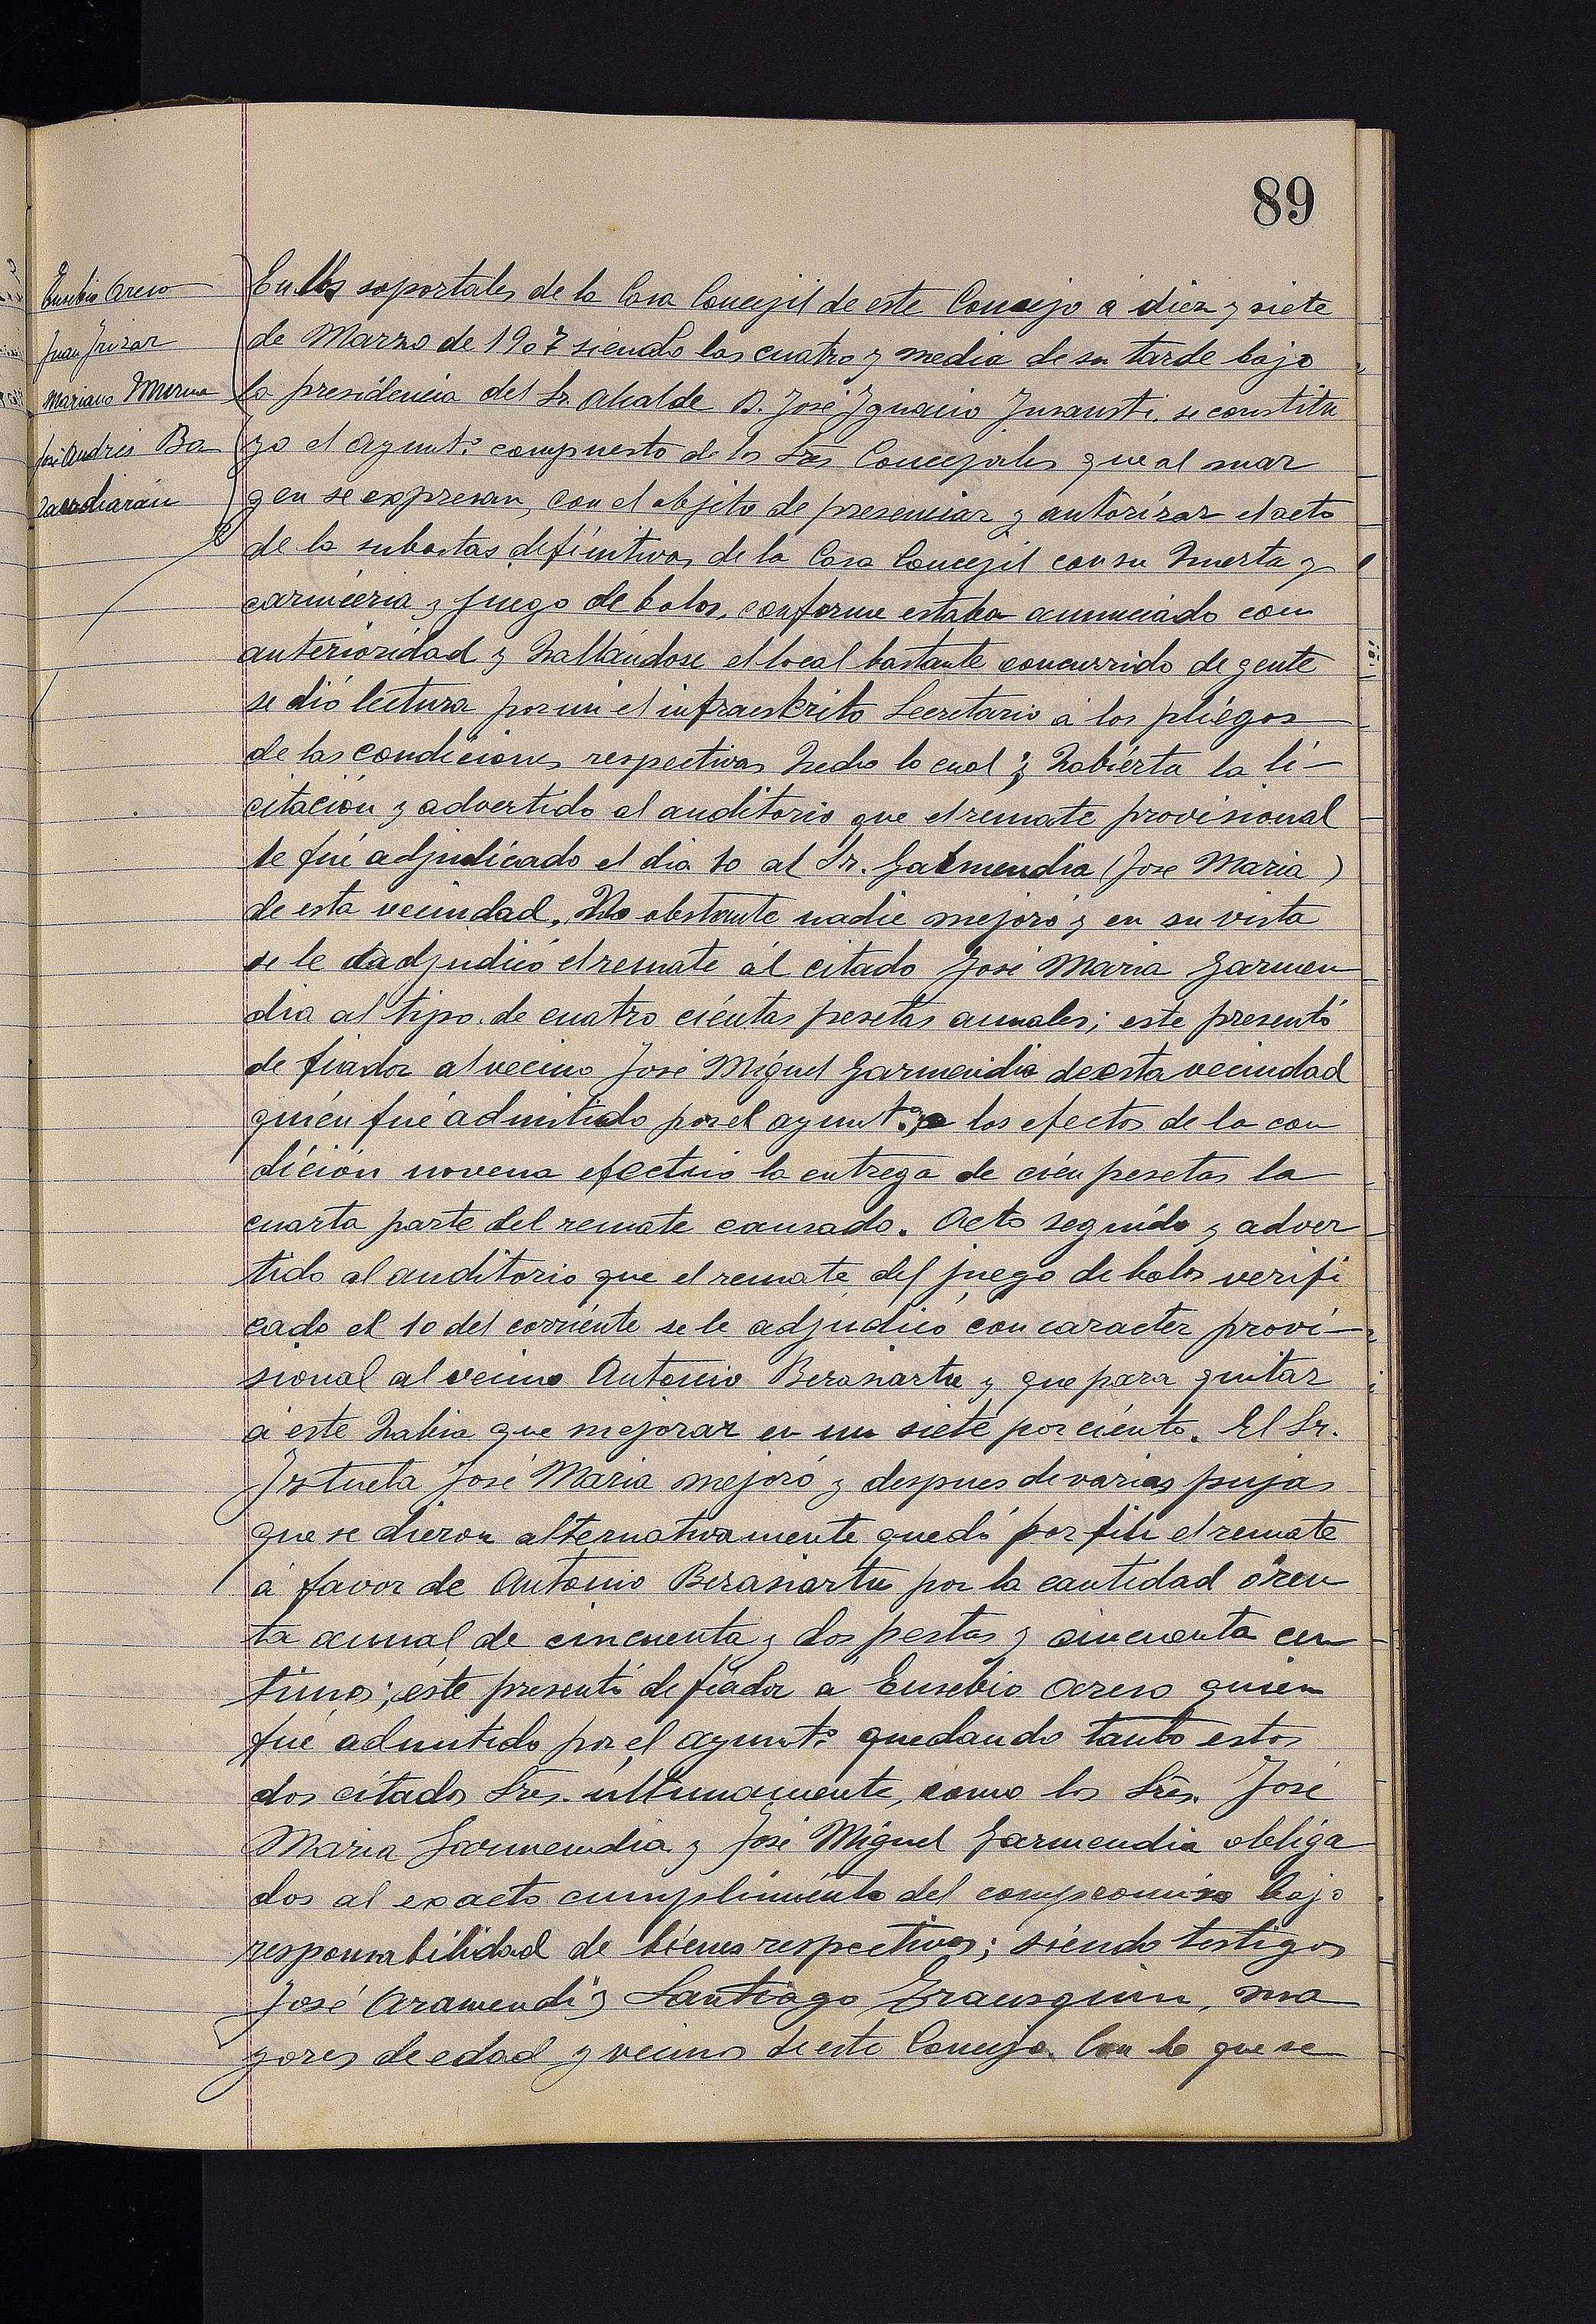 89
Eusebio Areso
Juan Irizar
Mariano Murua
José Andrés Ba
racudiarán
En los soportales de la Casa Concejil de este Concejo a diez y siete
de Marzo de 1907 siendo las cuatro y media de su tarde bajo
la presidencia del Sr. Alcalde D. José Ygnacio Insausti se constitu
yo el Ayunt.º compuesto de los Sres Concejales que al mar
gen se expresan, con el objeto de presenciar y autorizar el acto
de la subastas definitivas de la Casa Concejil con su huerta y
carniceria y juego de bolos, conforme estaba anunciado con
anterioridad y hallándose el local bastante concurrido de gente
se dió lectura por mi el infraeskrito Secretario á los pliegos
de las condiciones respectivas hecho lo cual y habiérta la li-
citación y advertido al auditorio que el remate provisional
le fué adjudicado el dia 10 al Sr. Garmendia (Jose Maria)
de esta vecindad. No obstante nadie mejoró y en su vista
se le adjudicó el remate ál citado José Maria Garmen
dia al tipo de cuatro cientas pesetas anuales; este presentó
de fiador al vecino José Miguel Garmendia de esta vecindad
quién fué admitido por el ayunt.º y a los efectos de la con
dición novena efectuó la entrega de cién pesetas la
cuarta parte del remate causado. Acto seguido y adver
tido al auditorio que el remate del juego de bolos verifi
cado el 10 del corriente se le adjudicó con caracter provi-
sional al vecino Antonio Berasartu y que para quitar
á este habia que mejorar en un siete por ciénto. El Sr.
Iztueta José Maria mejoró y despues de varias pujas
que se dieron alternativamente quedó por fin el remate
á favor de Antonio Berasartu por la cantidad ó ren
ta anual de cincuenta y dos pestas y cincuenta cen
timos; éste presentó de fiador a Eusebio Areso quien
fué admitido por el ayunt.º quedando tanto estos
dos citados Sres. últimamente, como los Sres. José
Maria Garmendia y José Miguel Garmendia obliga
dos al exacto cumplimiénto del compromiso bajo
responsabilidad de biénes respectivos; siéndo testigos
José Aramendi y Santiago Erausquin, ma
yores de edad y vecinos de este Concejo. Con lo que se